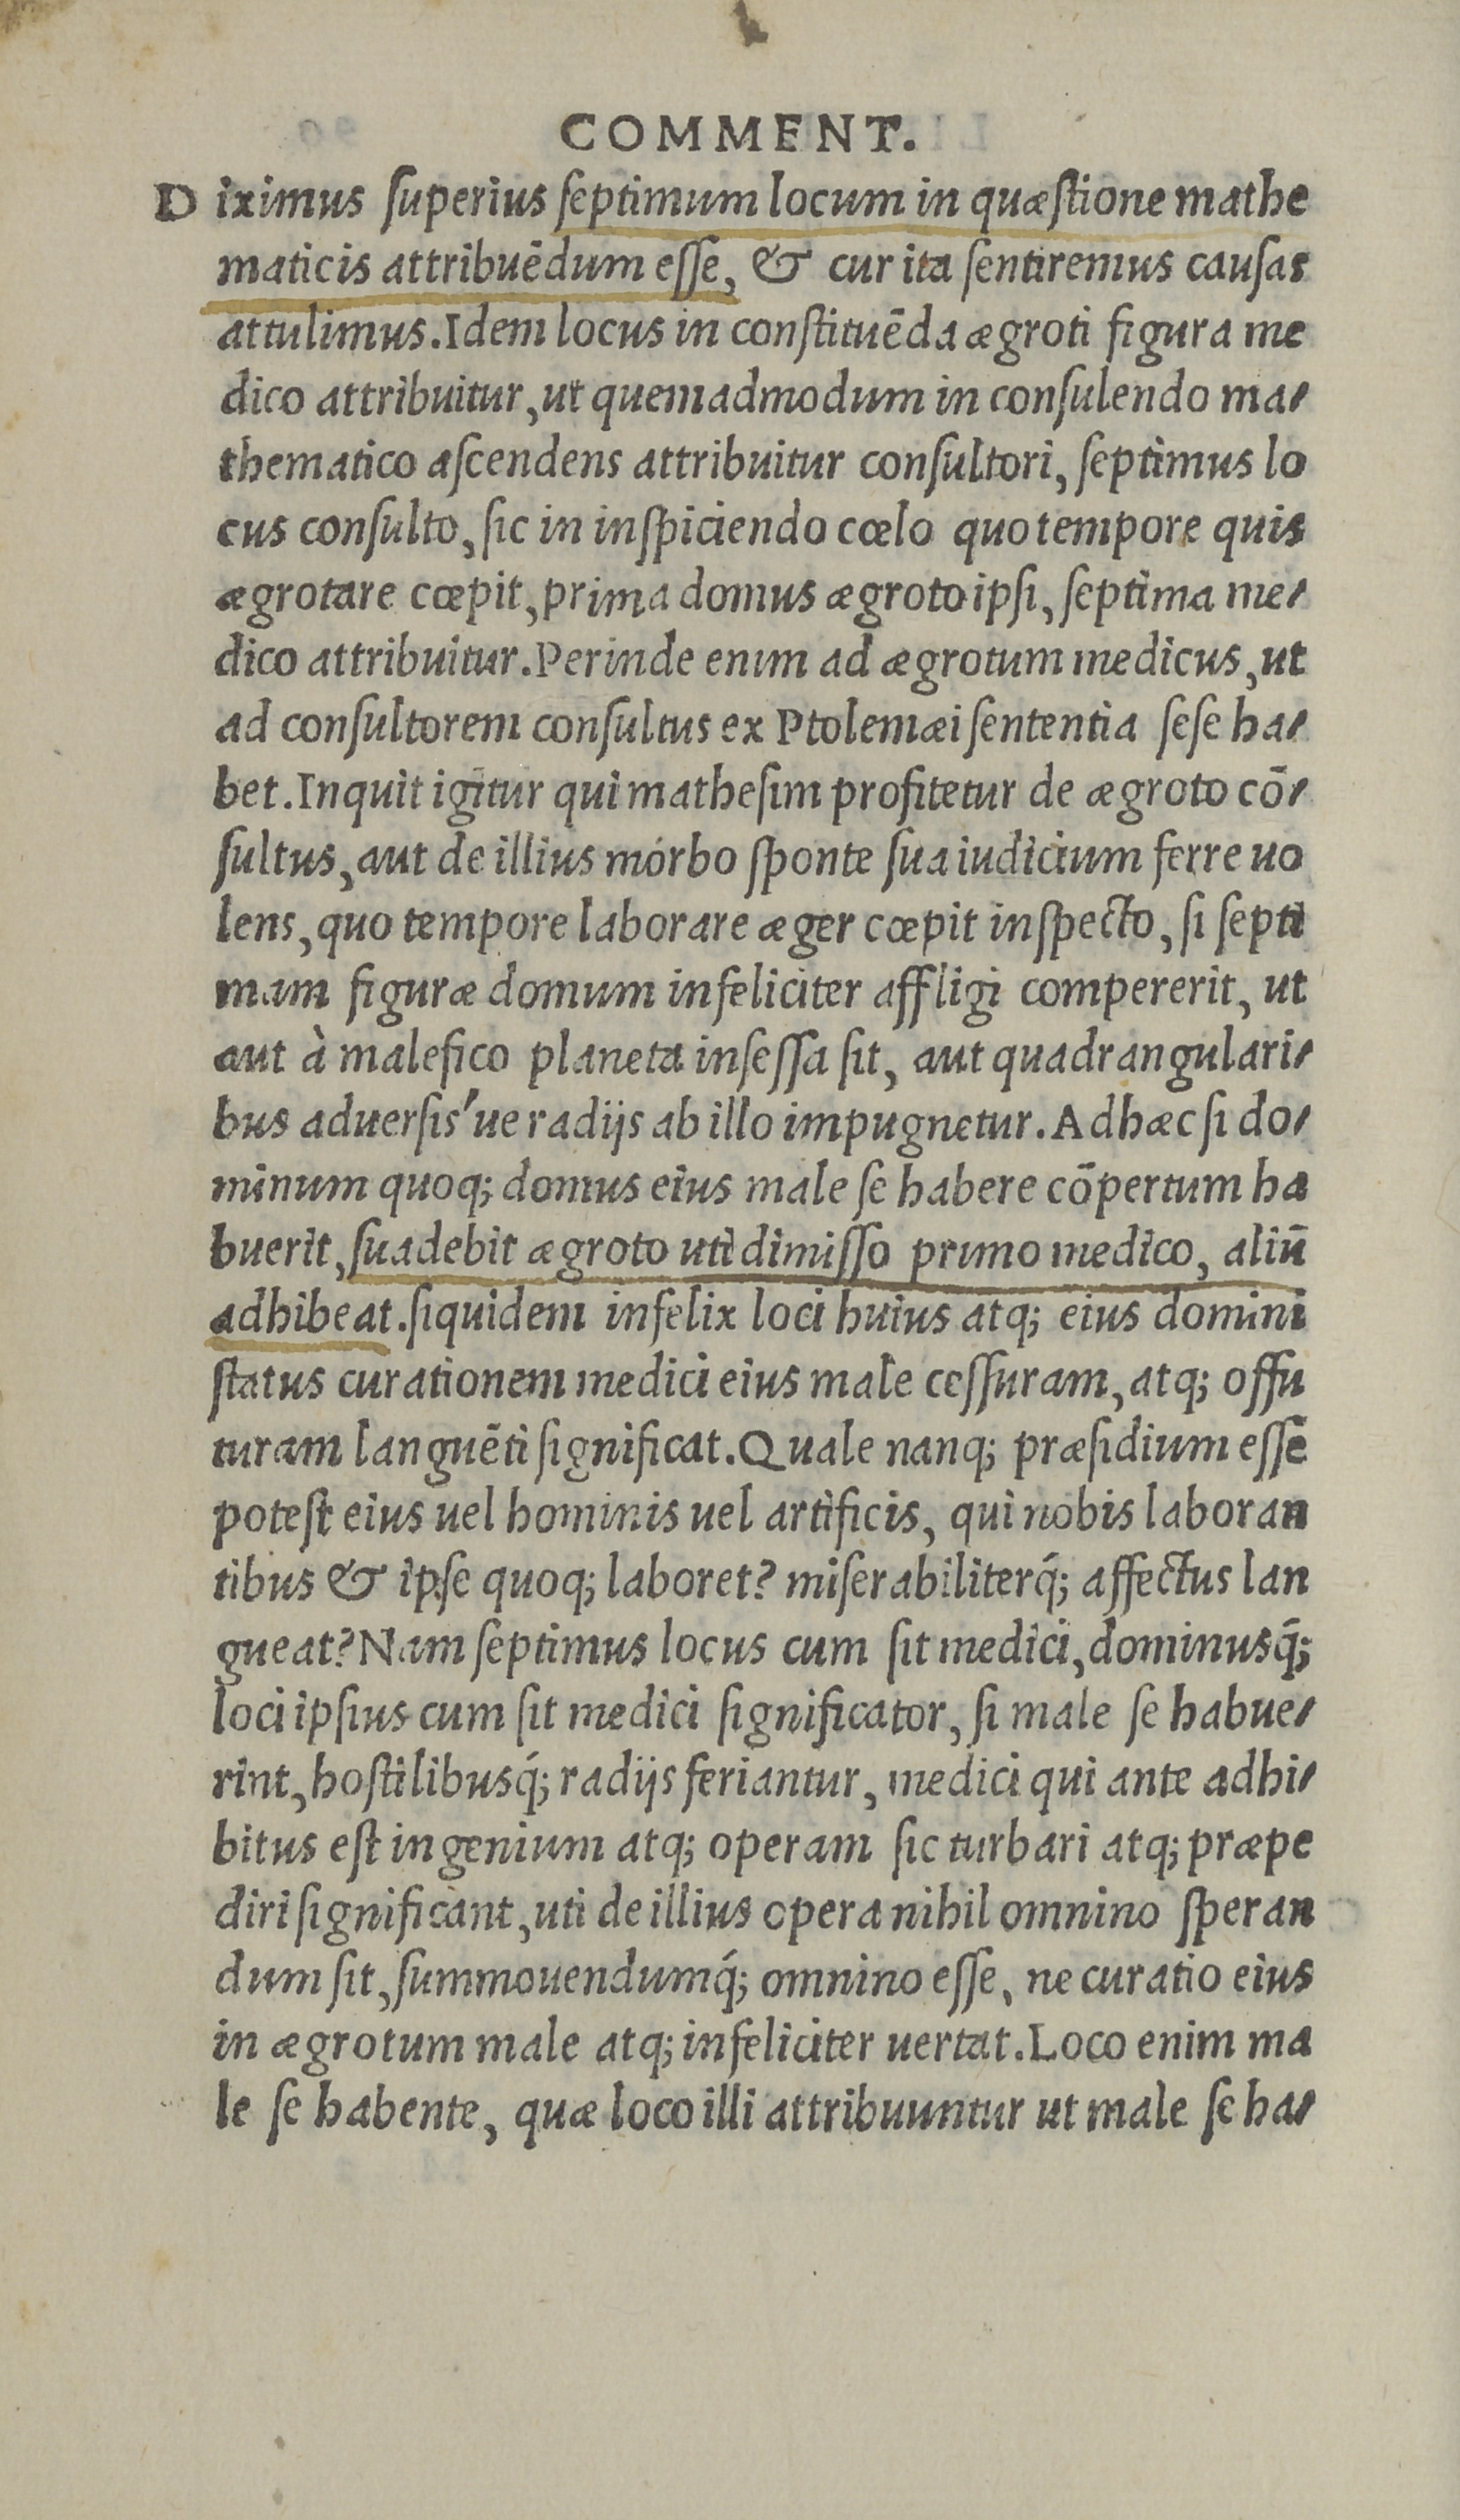 COMMENT.
Diximus superius septimum locum in quæstione mathe
maticis attribuēdum esse, & cur ita sentiremus causas
attulimus. Idem locus in constituēda ægroti figura me
dico attribuitur, ut quemadmodum in consulendo ma-
thematico ascendens attribuitur consultori, septimus lo
cus consulto, sic in inspiciendo cœlo quo tempore quis
ægrotare cœpit, prima domus ægroto ipsi, septima me-
dico attribuitur. Perinde enim ad ægrotum medicus, ut
ad consultorem consultus ex Ptolemæi sententia sese ha-
bet. Inquit igitur qui mathesim profitetur de ægroto cō-
sultus, aut de illius morbo sponte sua iudicium ferre uo
lens, quo tempore laborare æger cœpit inspecto, si septi
mam figuræ domum infeliciter affligi compererit, ut
aut à malefico planeta insessa sit, aut quadrangulari-
bus aduersis'ue radijs ab illo impugnetur. Adhæc si do-
minum quoq; domus eius male se habere cōpertum ha
buerit, suadebit ægroto uti dimisso primo medico, aliū
adhibeat. siquidem infelix loci huius atq; eius domini
status curationem medici eius male cessuram, atq; offu
turam languēti significat. Quale nanq; præsidium esse
potest eius uel hominis uel artificis, qui nobis laboran
tibus & ipse quoq; laboret? miserabiliterq́; affectus lan
gueat? Nam septimus locus cum sit medici, dominusq́;
loci ipsius cum sit medici significator, si male se habue-
rint, hostilibusq́; radijs feriantur, medici qui ante adhi-
bitus est ingenium atq; operam sic turbari atq; præpe
diri significant, uti de illius opera nihil omnino speran
dum sit, summouendumq́; omnino esse, ne curatio eius
in ægrotum male atq; infeliciter uertat. Loco enim ma
le se habente, quæ loco illi attribuuntur ut male se ha-